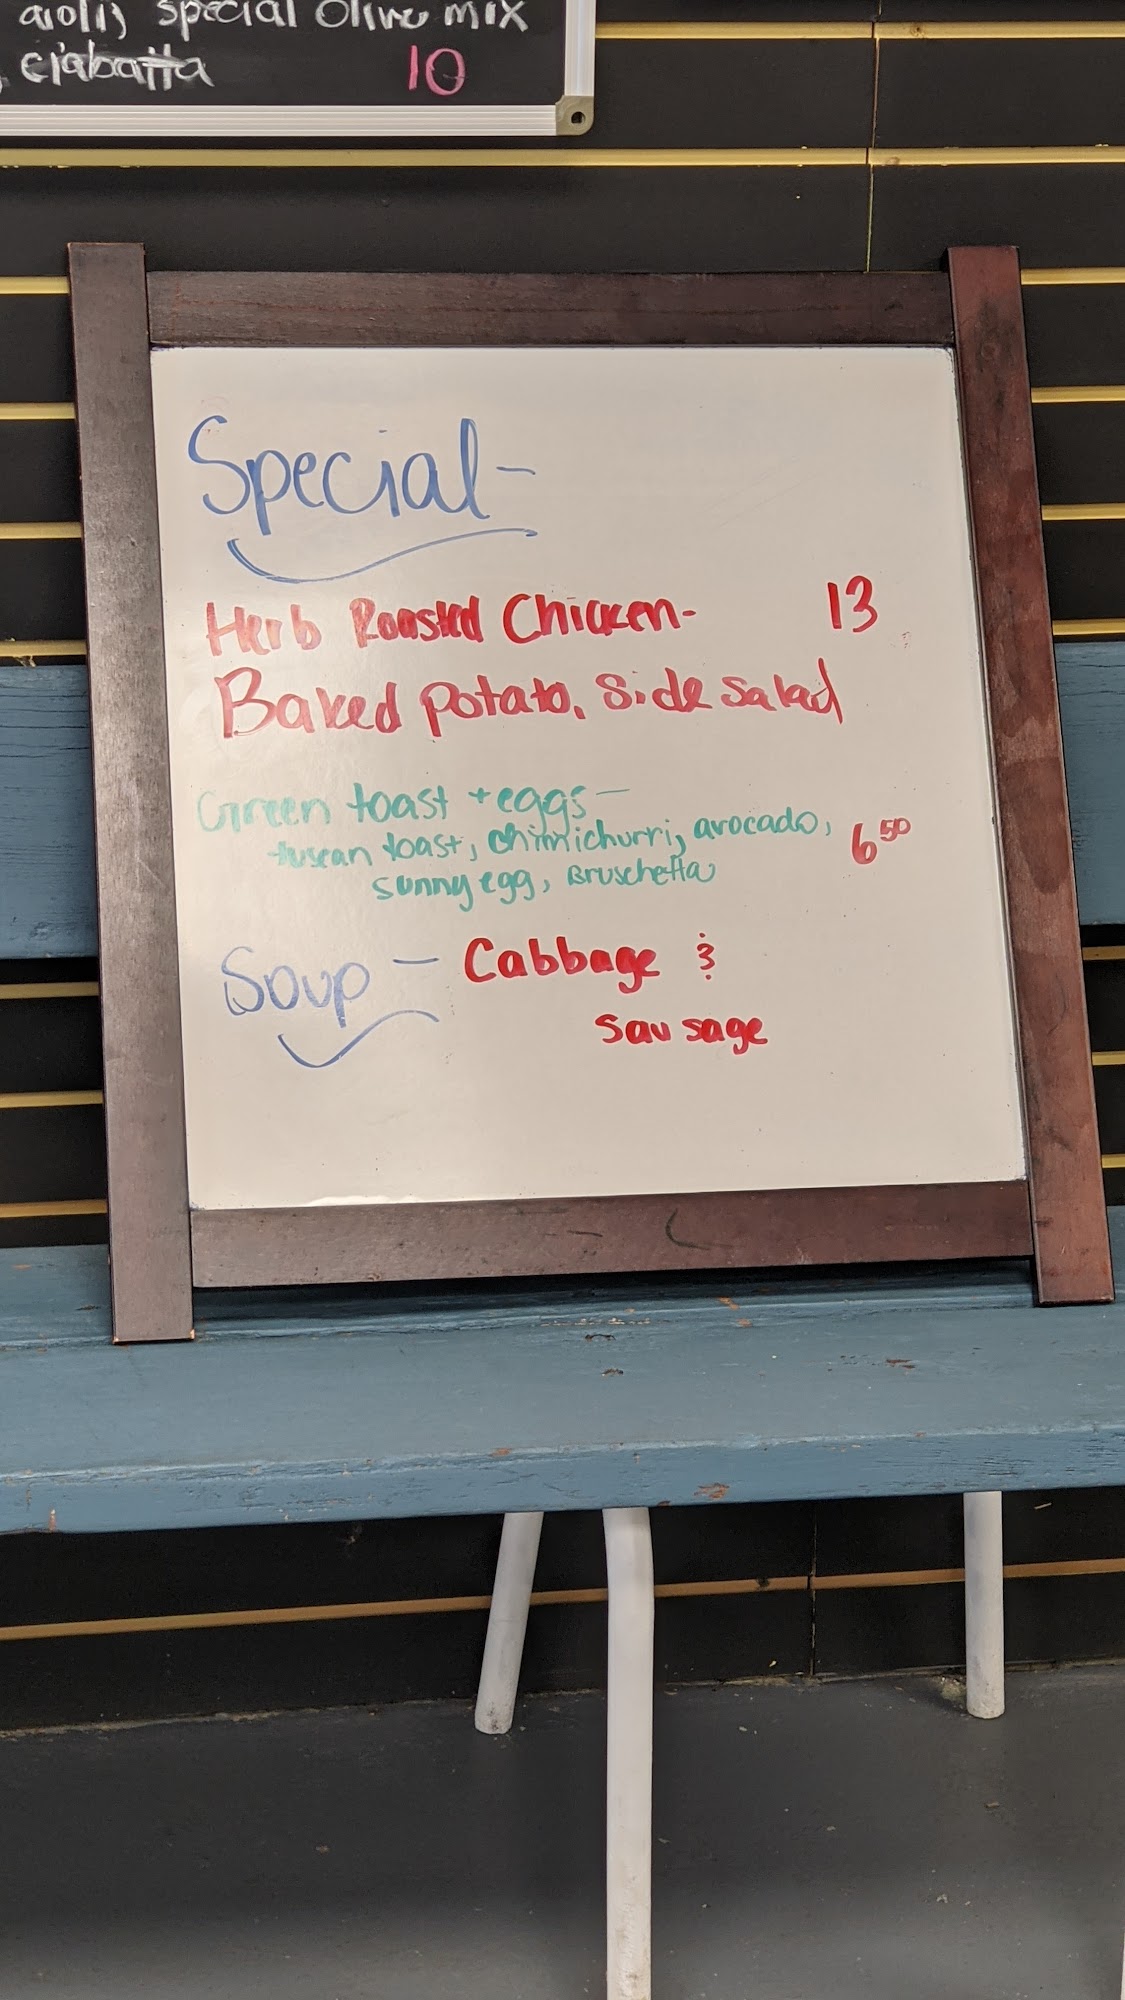 aioli, special Olive mix
ciabatta 10
Special-
Herb Roasted Chicken- 13
Baked potato, Side Salad
Green toast + eggs-
tuscan toast, chimichurri, avocado, 6.50
sunny egg, Bruschetta
Soup - Cabbage &
Sausage